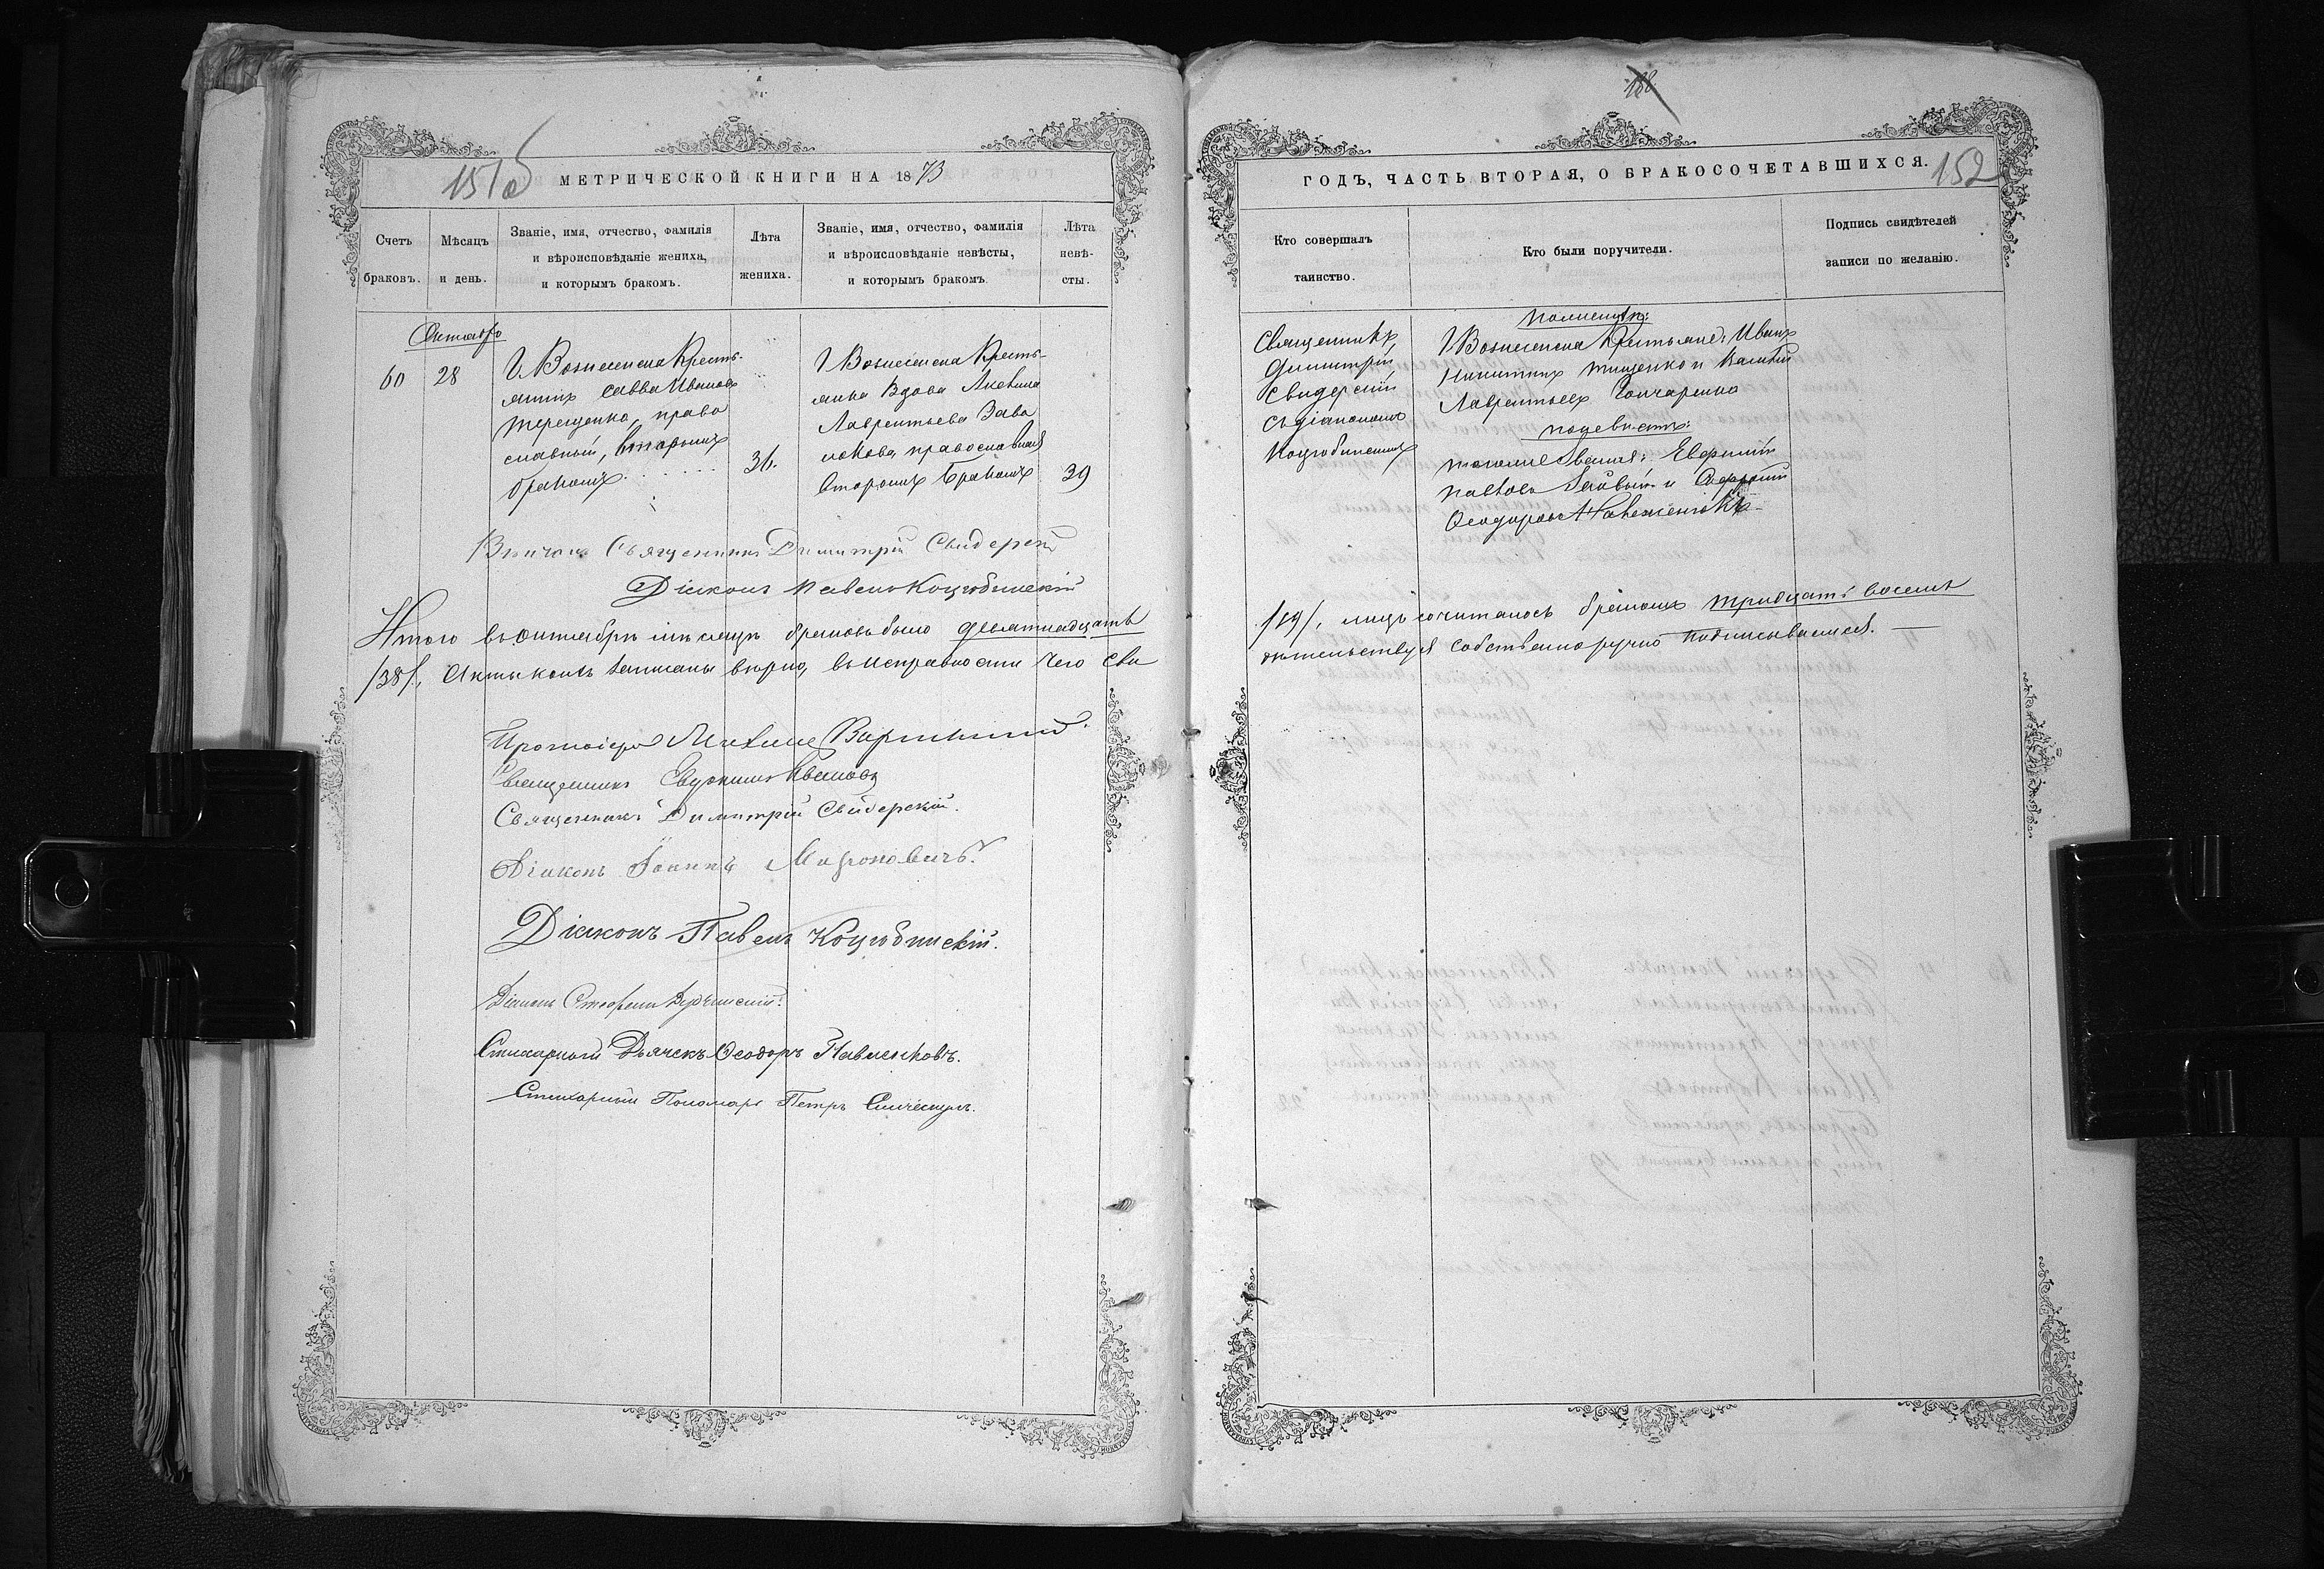 151об
МЕТРИЧЕСКОЙ КНИГИ НА 1873
Счетъ браковъ.
Мѣсяцъ и день.
Званіе, имя, отчество, фамилія
и вѣроисповѣданіе жениха,
и которымъ бракомъ.
Лѣта
жениха.
Званіе, имя, отчество, фамилія
и вѣроисповѣданіе невѣсты,
и которымъ бракомъ.
Лѣта
невѣ-
сты.
Октября
60
28
Г. Вознесенска Кресть-
янинъ Савва Ивановъ
Терещенко, право
славный, вторымъ
бракомъ.
36.
Г. Вознесенска Кресть-
янка Вдова
Лаврентьева
православная
вторымъ бракомъ
39
Вѣнчалъ Священникъ Димитрій Свидерскій
Діаконъ Павелъ Коцюбинскій
Итого въ октябрѣ мѣсяцѣ браковъ было девятнадцать
/38/, Акты коихъ записаны вѣрно, въ исправности чего сви
Протоіерей
Священникъ Ивановъ
Священникъ Димитрій Свидерскій.
Діаконъ Іоаннъ
Діаконъ Павелъ Коцюбинскій.
Діаконъ Стефанъ
Стихарный Дьячекъ Ѳеодоръ Навменковъ.
Стихарный Пономарь Петръ
188
ГОДЪ, ЧАСТЬ ВТОРАЯ, О БРАКОСОЧЕТАВШИХСЯ.
152
Кто совершалъ
таинство.
Кто были поручители.
Подпись свидѣтелей
записи по желанію.
Священникъ
Димитрій
Свидерскій
съ діакономъ
Коцюбинскимъ
По женихѣ:
Г. Вознесенска Крестьяне: Иванъ
Никитинъ Тищенко и Василій
Лаврентьевъ Гончаренко
по невѣстѣ:
тогоже званія: Евфимій
Павловъ и
Ѳеодоровъ
/19/, лицъ сочиталось бракомъ тридцать восемь
дѣтельствуя собственноручно подписываемся.